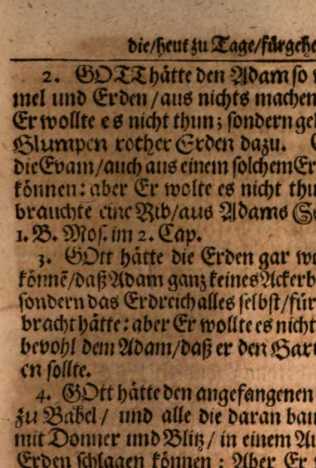 die/heut zu Tage/fürgehe
2. GOTT hätte den Adam so
mel und Erden/aus nichts machen
Er wollte es nicht thun; sondern
Glumpen rother Erden dazu.
die Evam/auch aus einem solchem Er
können: aber Er wolte es nicht thu
brauchte eine Rib/aus Adams
1. B. Mos. im 2. Cap.
3. GOtt hätte die Erden gar
könnē/daß Adam ganz keines Ackerb
sondern das Erdreich alles selbst/für
bracht hätte: aber Er wollte es nicht
bevohl dem Adam/daß er den Gar
en sollte.
4. GOtt hätte den angefangenen
zu Babel/ und alle die daran bau
mit Donner und Blitz/ in einem
Erden schlagen können: Aber Er